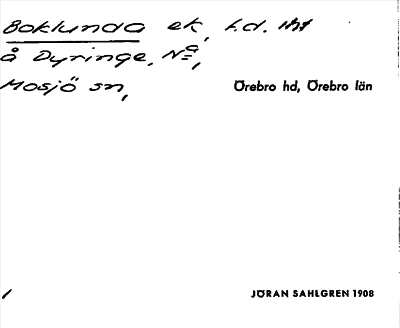 Boklunda ek, f.d. tht
å Dyringe, Nª,
Mosjö sn,
Örebro hd, Örebro län
1
JÖRAN SAHLGREN 1908